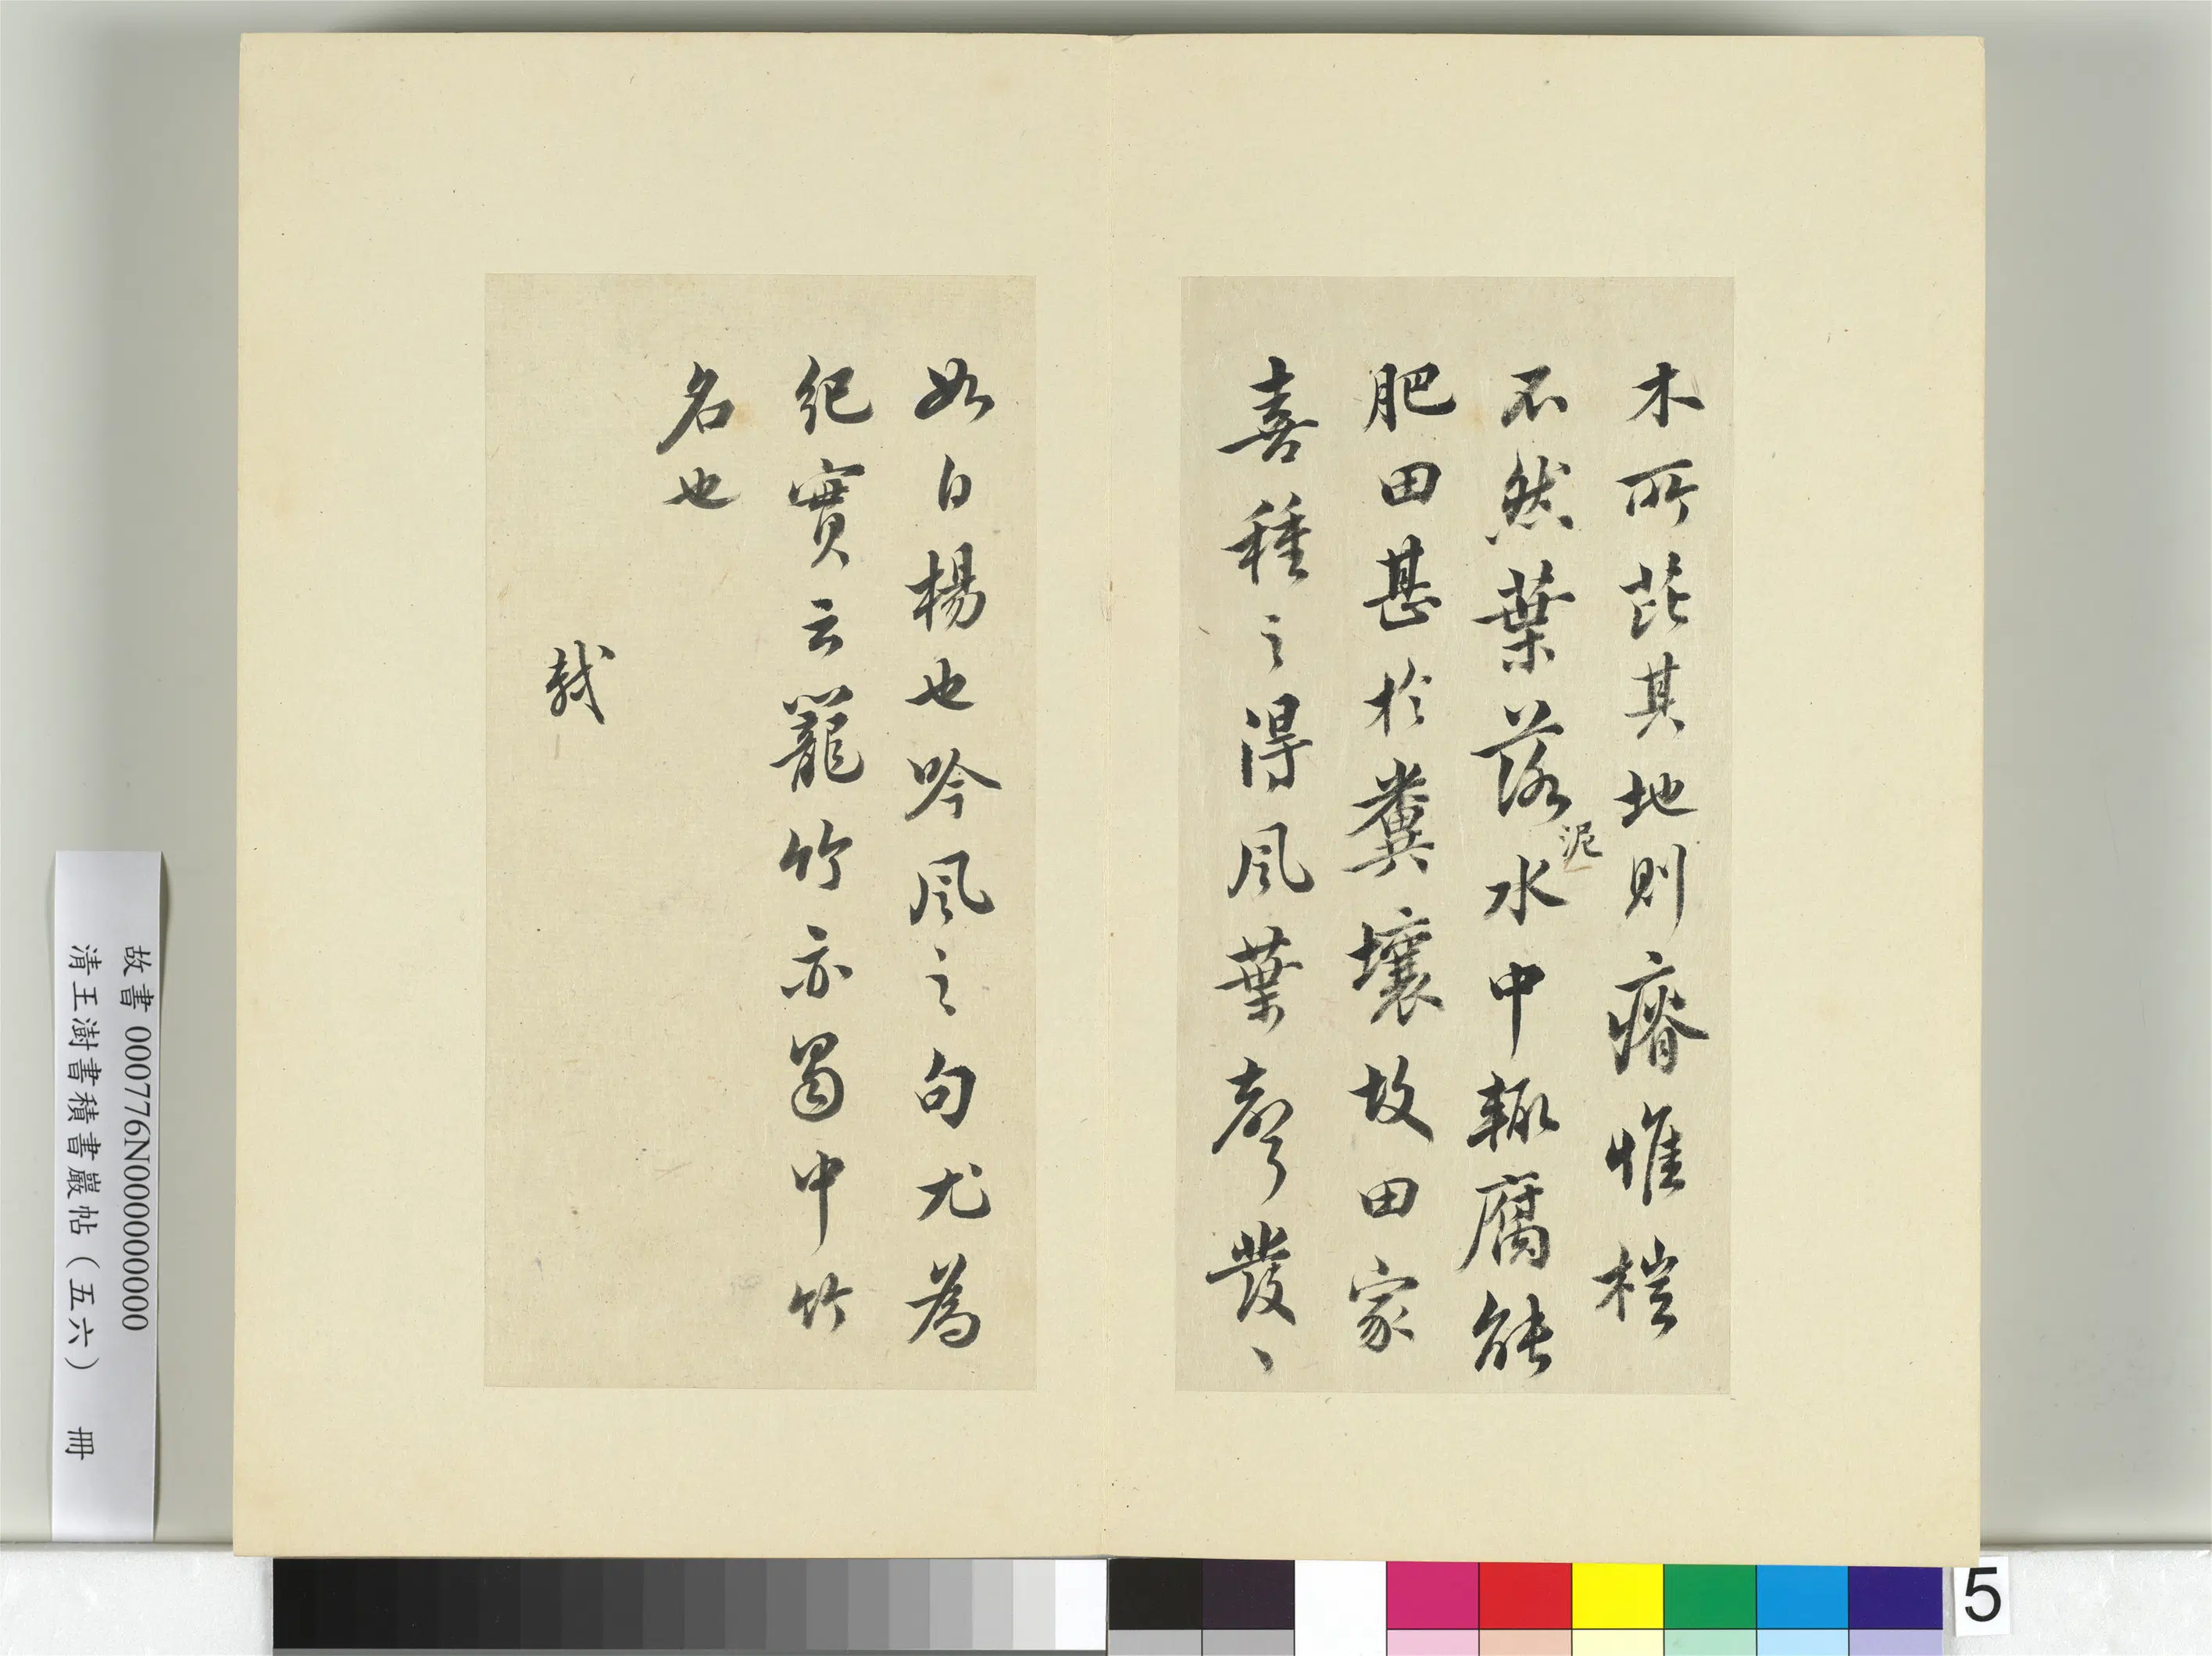 木所芘其地則瘠惟榿
不然葉落泥水中輒腐能
肥田甚於糞壤故田家
喜種之得風葉聲發、
如白楊也吟風之句尤為
紀實云籠竹亦蜀中竹
名也
軾
故書 000776N000000000
清王澍書積書巖帖（五六） 冊
5